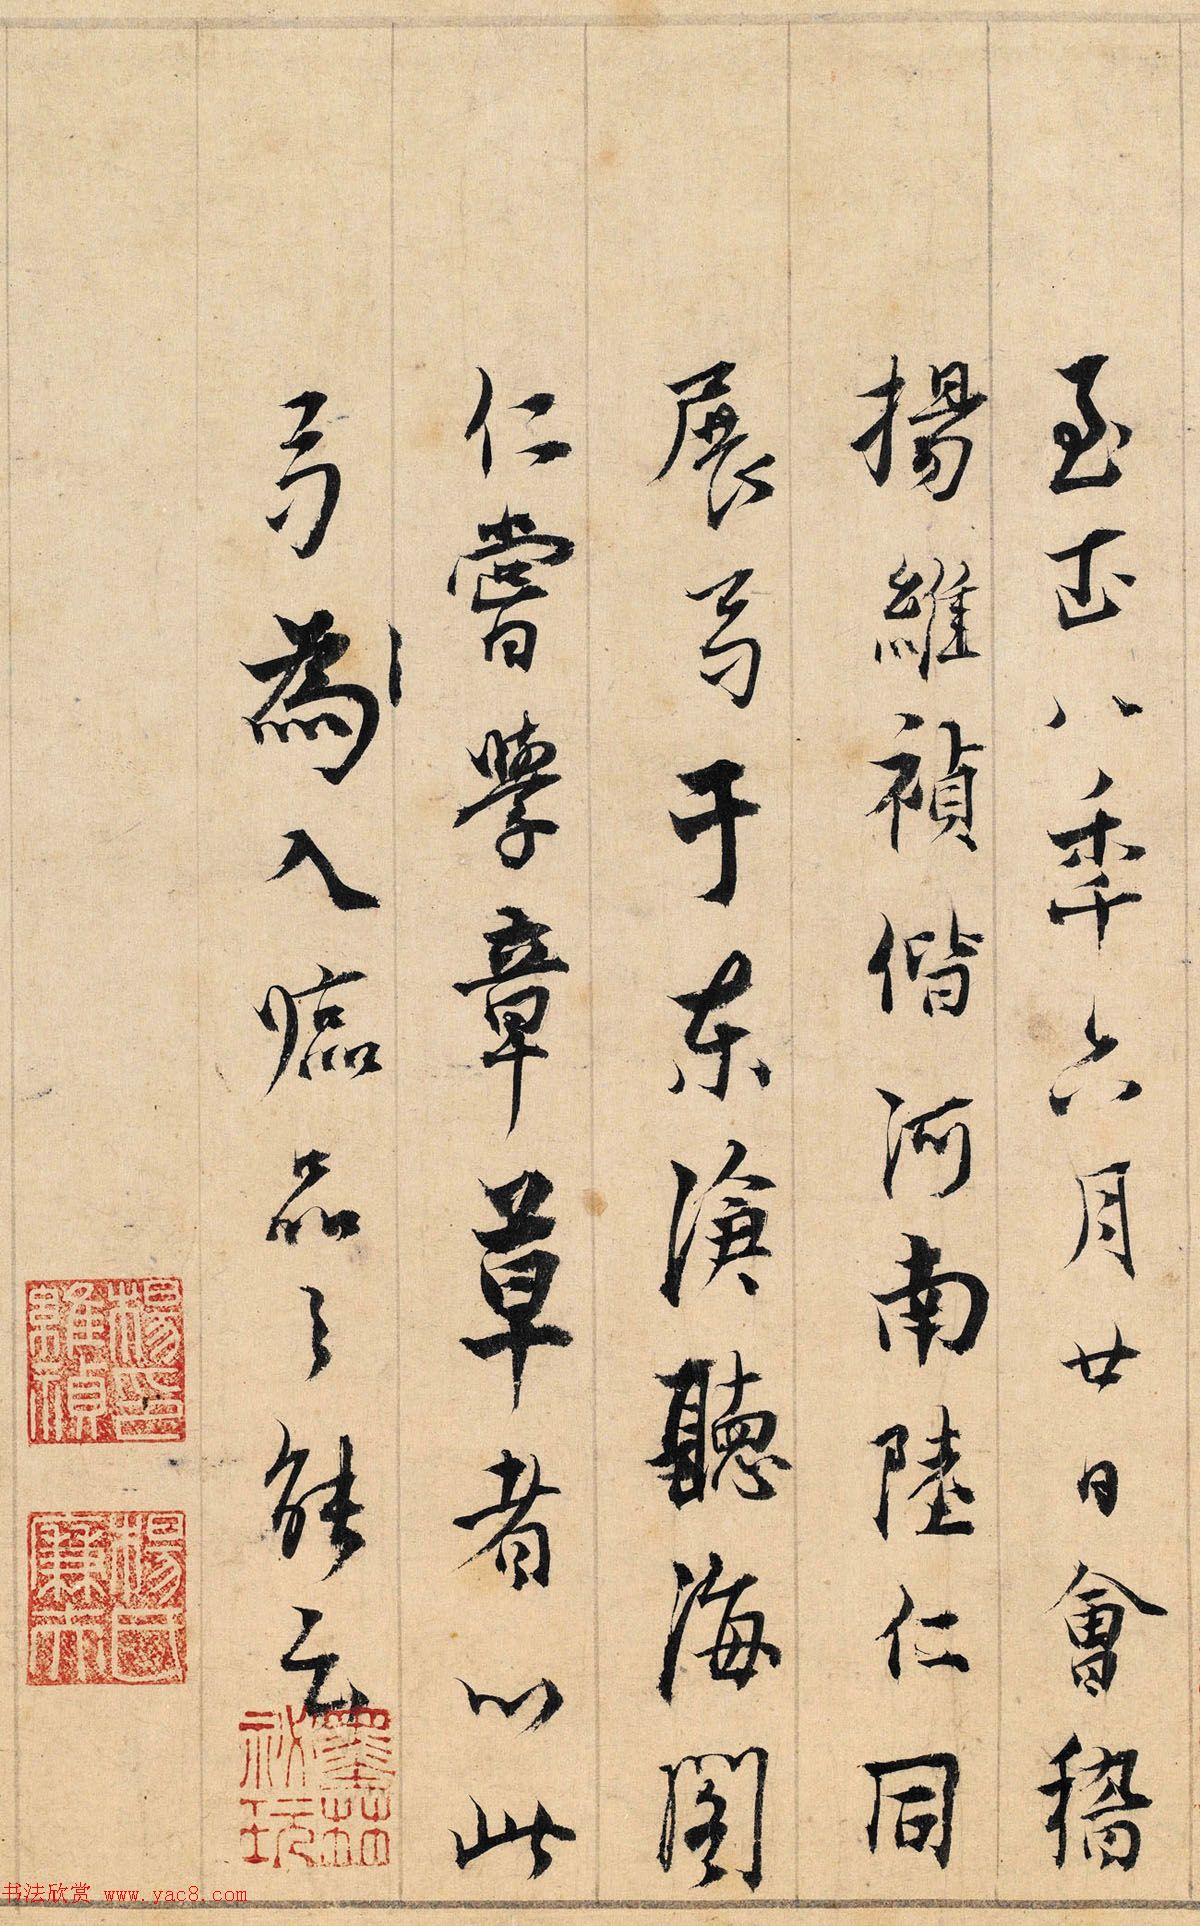 至正八年六月廿日會稽
楊維禎偕河南陸仁同
展弓于东滄聽海閣
仁嘗學章草者以此
弓為入臨品之能云
楊印維禎
楊氏廉夫
墨林秘玩
书法欣赏 www.yac8.com